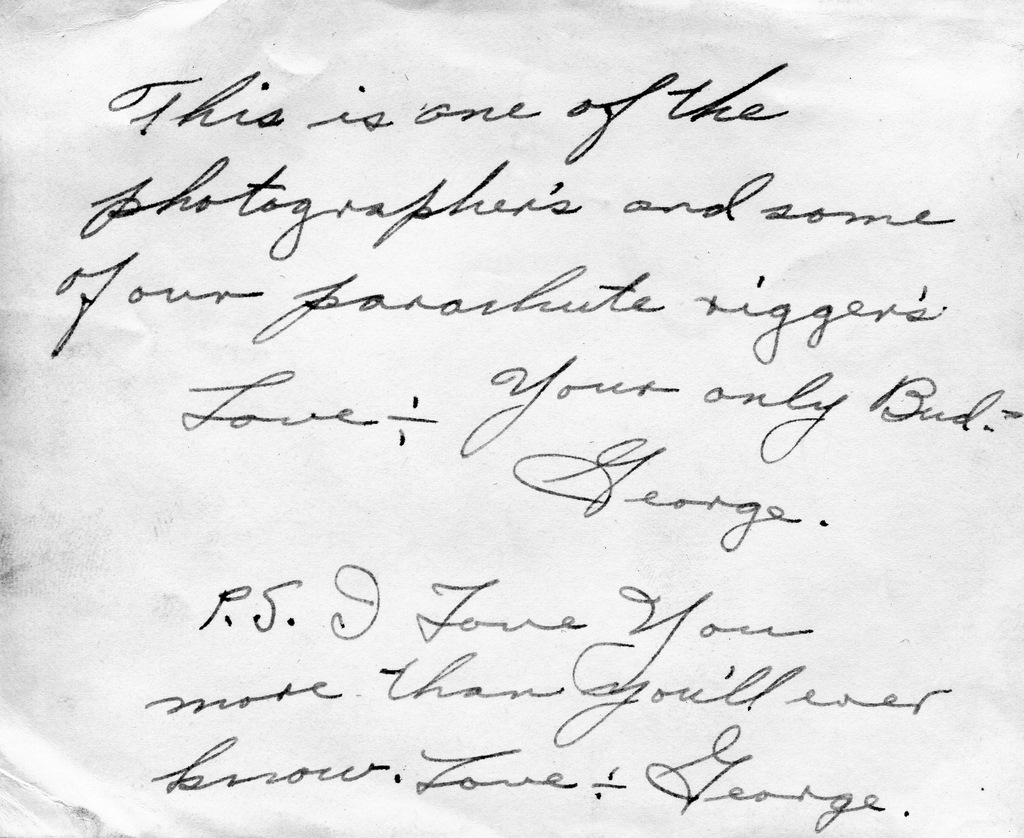 This is one of the
photographer's and some
of our parachute rigger's
Love ÷ Your only Bud.=
George.
P.S. I Love You
more than you'll ever
know. Love ÷ George.